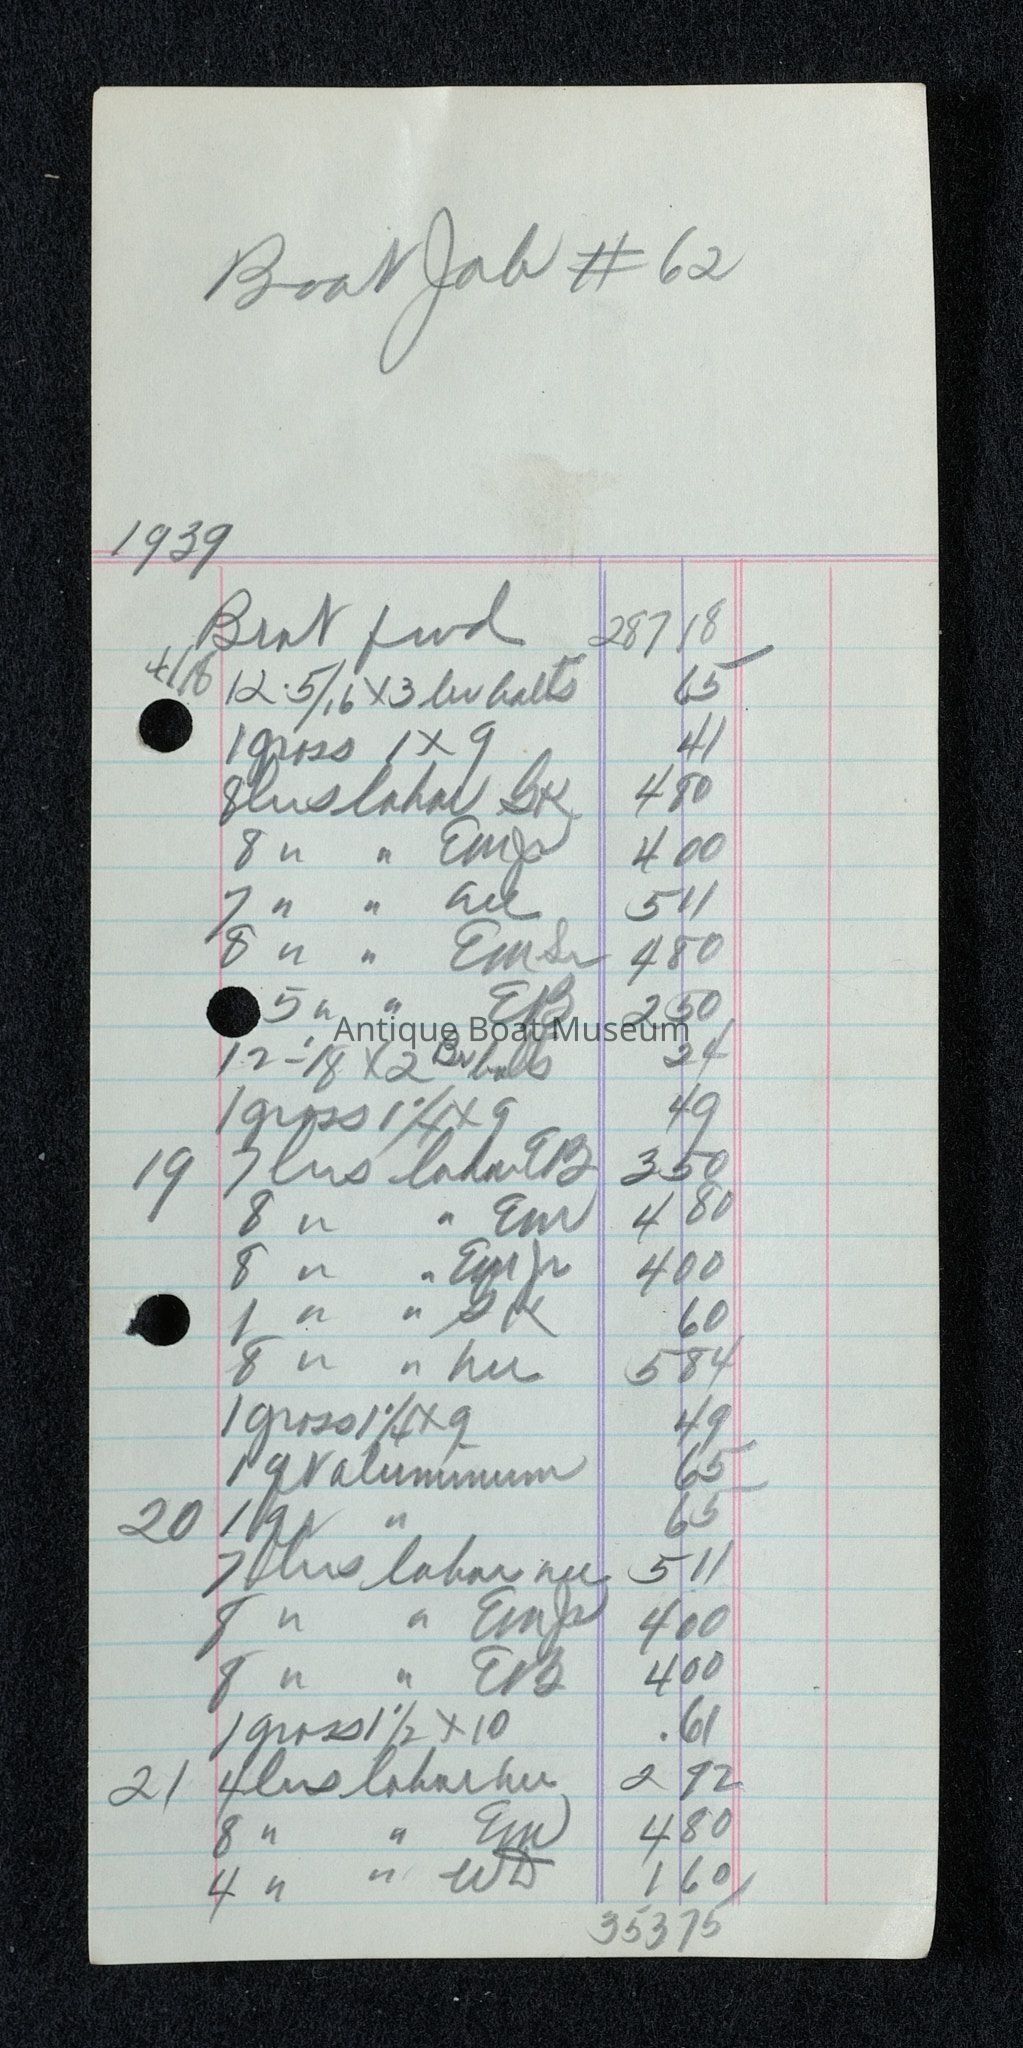 Boat Job # 62
1939
Brot fwd 287 18
4/18 12-5/16 X 3 bolts 65
1 gross 1 X 9 41
8 hrs labor GK 4 80
8 " " EM Jr 4 00
7 " " 5 11
8 " " EM Sr 4 80
5 " " EB 2 50
Antique Boat Museum
12-1/8 X 2 Br bolts 24
1 gross 1 1/4 X 9 49
19 7 hrs labor EB 3 50
8 " " EM 4 80
8 " " EM Jr 4 00
1 " " GK 60
8 " " 5 84
1 gross 1 1/4 X 9 49
1 qt aluminum 65
20 1 qt " 65
7 hrs labor 5 11
8 " " EM Jr 4 00
8 " " EB 4 00
1 gross 1 1/2 X 10 .61
21 4 hrs labor 2 92
8 " " EM 4 80
4 " " WD 1 60
353 75